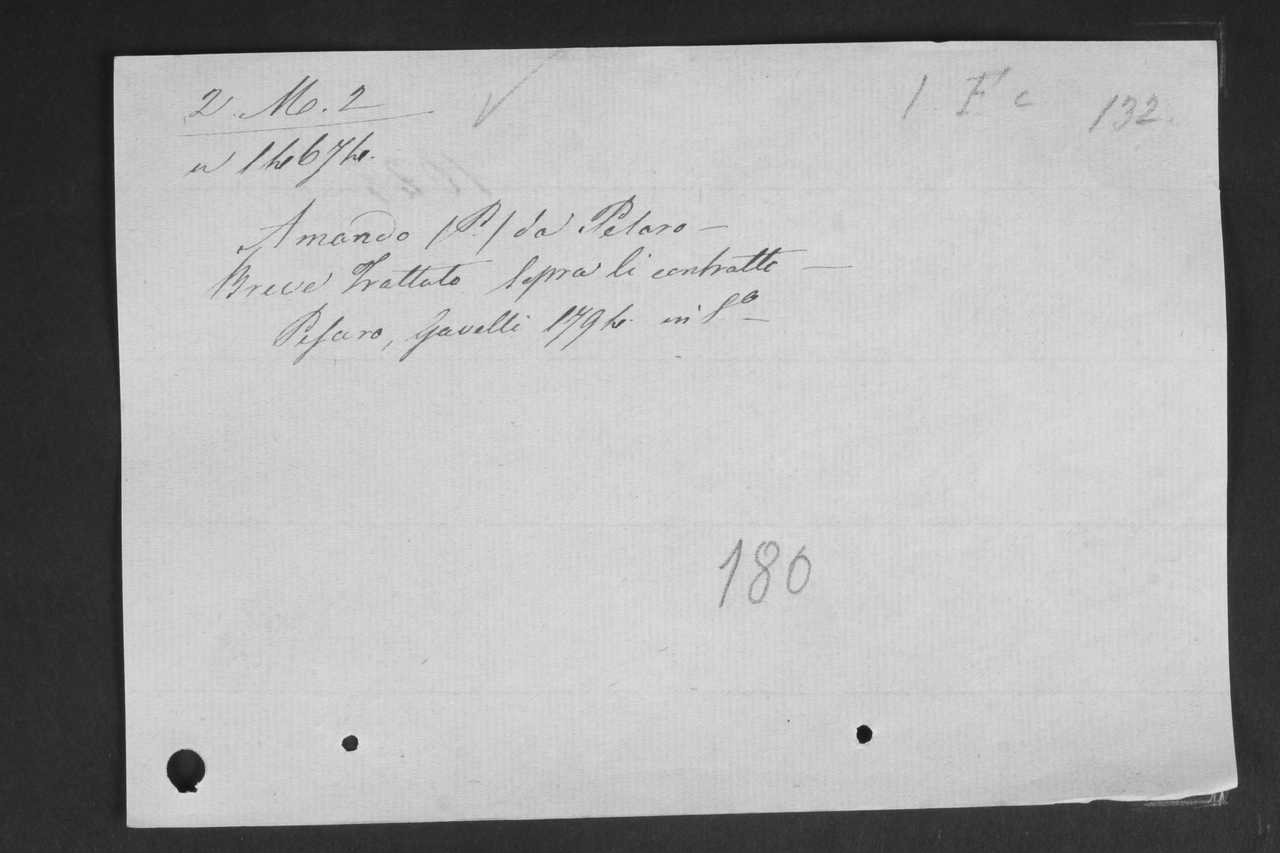 2. M. 2
1 F c 132.
n 14674.
Amando (P.) da Pesaro —
Breve Trattato Sopra li contratti —
Pesaro, Gavelli 1794. in 8º
180